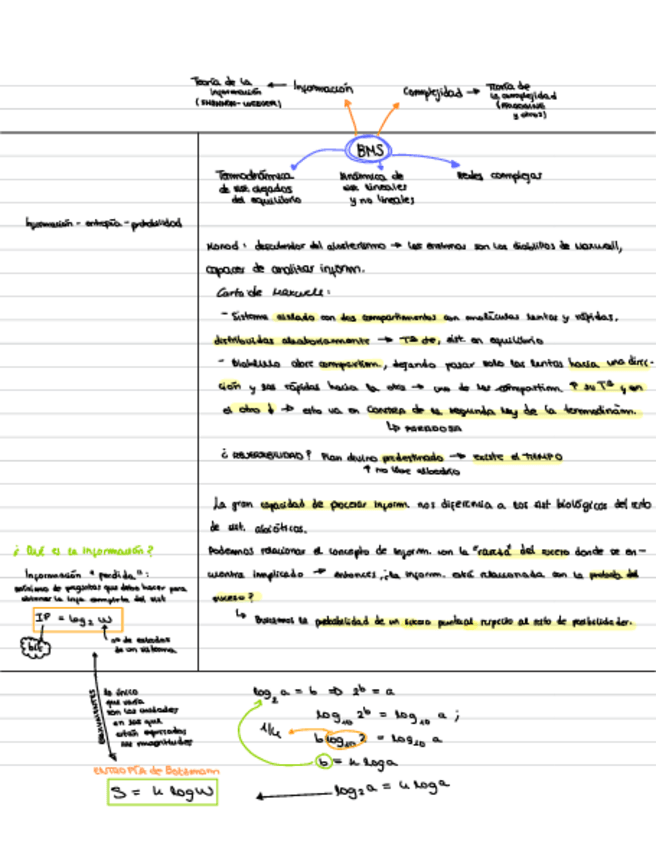 Teoría de la información (SHANNON-WEAVER) ← Información
Complejidad → Teoría de la complejidad (PRIGOGINE y otros)
BMS
Termodinámica de sist. alejados del equilibrio
Dinámica de sist. lineales y no lineales
Redes complejas
Información - entropía - probabilidad
Monod: descubridor del alosterismo → las enzimas son los diablillos de Maxwell,
capaces de analizar inform.
Carta de Maxwell:
- Sistema aislado con dos compartimentos con moléculas lentas y rápidas,
distribuidas aleatoriamente → Tª cte, sist. en equilibrio
- Diablillo abre compartim., dejando pasar solo las lentas hacia una direc-
ción y las rápidas hacia la otra → uno de los compartim. ↑ su Tª y en
el otro ↓ → esto va en contra de la segunda ley de la termodinám.
↳ PARADOJA
¿REVERSIBILIDAD? Plan divino predestinado → existe el TIEMPO
↑ no libre albedrío
La gran capacidad de procesar inform. nos diferencia a los sist biológicos del resto
de sist. abióticos.
¿Qué es la información?
Podemos relacionar el concepto de inform. con la "rareza" del suceso donde se en-
cuentra implicado → entonces, ¿la inform. está relacionada con la probab. del
suceso?
↳ Buscamos la probabilidad de un suceso puntual respecto al resto de posibilidades.
Información "perdida":
mínimo de preguntas que debo hacer para
obtener la info completa del sist
IP = log₂ W
bits
nº de estados
de un sistema
EQUIVALENTES
lo único
que varía
son las unidades
en las que
están expresadas
las magnitudes
ENTROPÍA de Boltzmann
S = k log W
log₂ a = b ⇒ 2ᵇ = a
log₁₀ 2ᵇ = log₁₀ a ;
1/k
b log₁₀ 2 = log₁₀ a
b = k log a
log₂ a = k log a